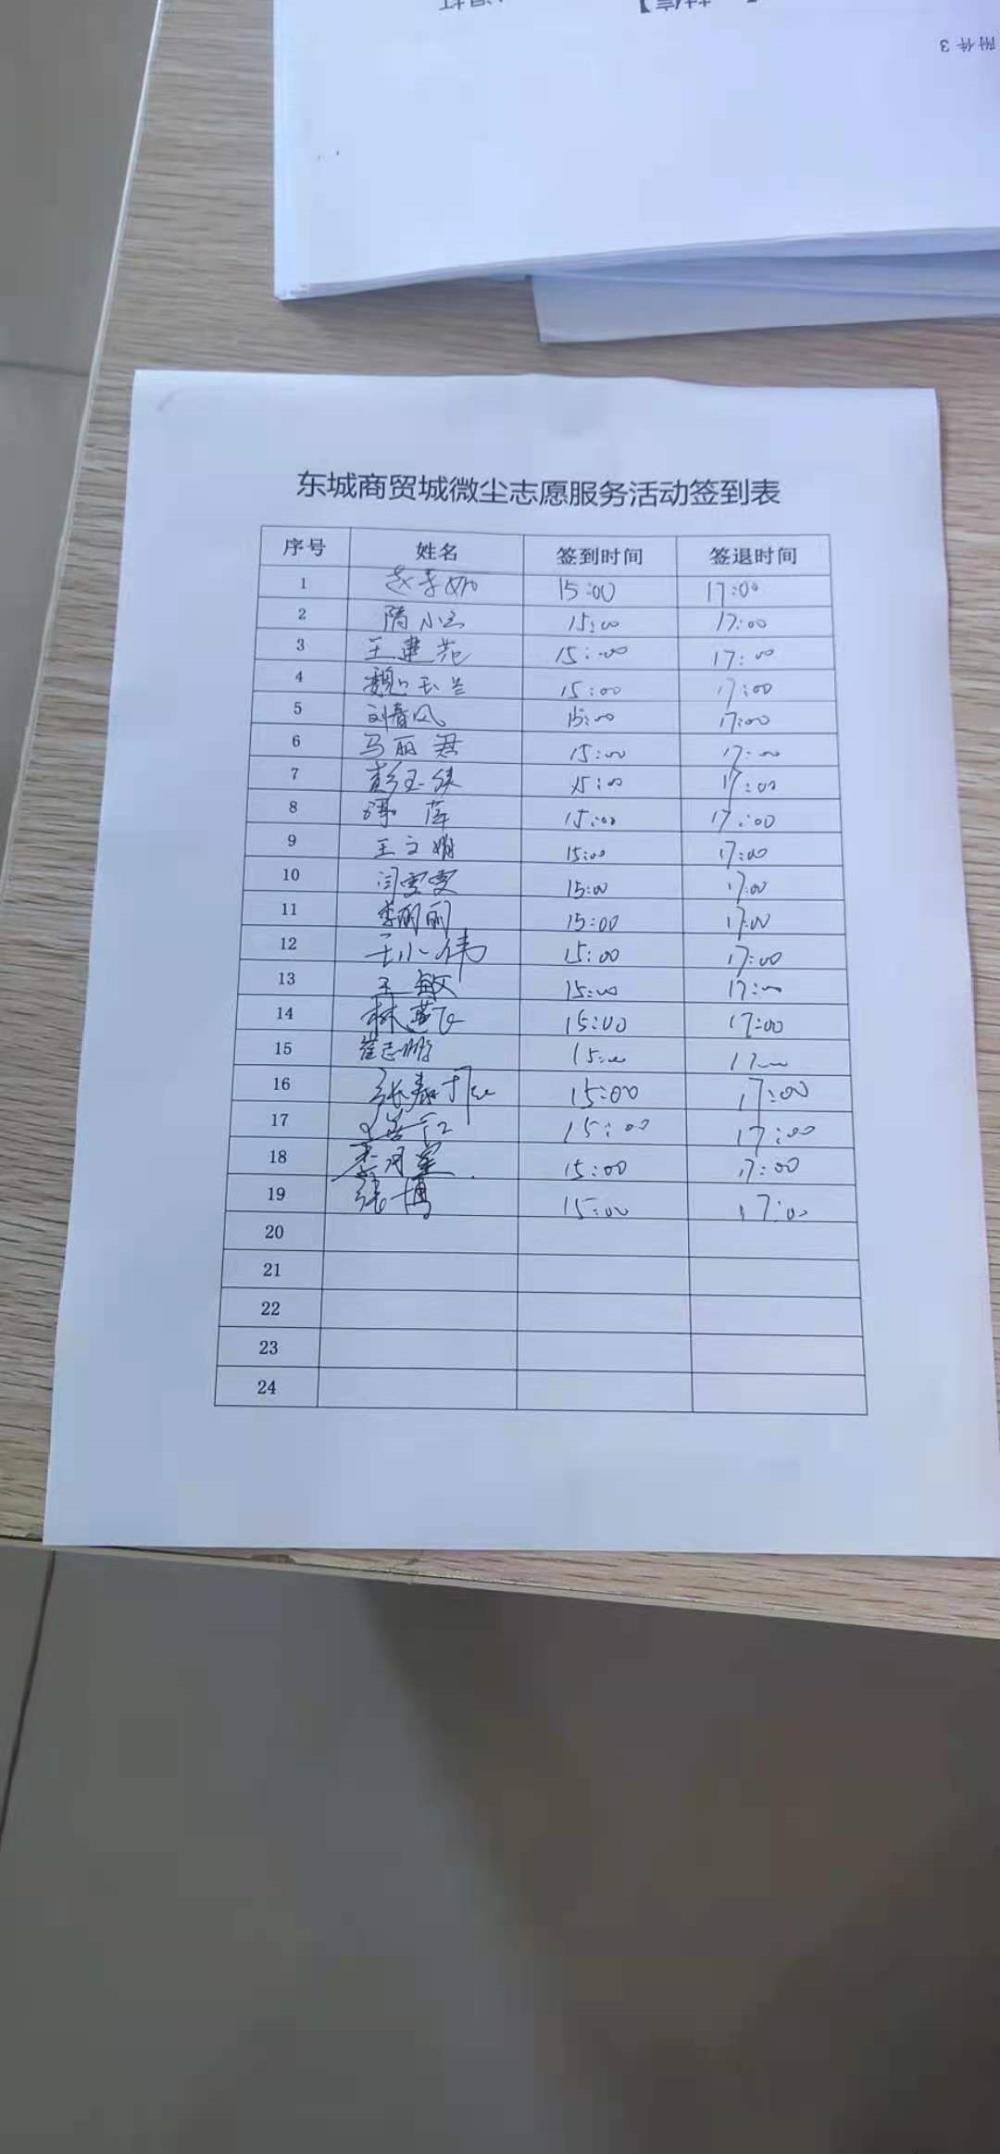 附件3
东城商贸城微尘志愿服务活动签到表
序号 姓名 签到时间 签退时间
1 15:00 17:00
2 隋小云 15:00 17:00
3 王建苑 15:00 17:00
4 魏玉兰 15:00 17:00
5 刘春风 15:00 17:00
6 马丽君 15:00 17:00
7 彭玉侠 15:00 17:00
8 谭萍 15:00 17:00
9 王文娟 15:00 17:00
10 闫雯雯 15:00 17:00
11 李丽丽 15:00 17:00
12 王小伟 15:00 17:00
13 王敏 15:00 17:00
14 林莲飞 15:00 17:00
15 崔志鹏 15:00 17:00
16 15:00 17:00
17 15:00 17:00
18 15:00 17:00
19 张博 15:00 17:00
20
21
22
23
24